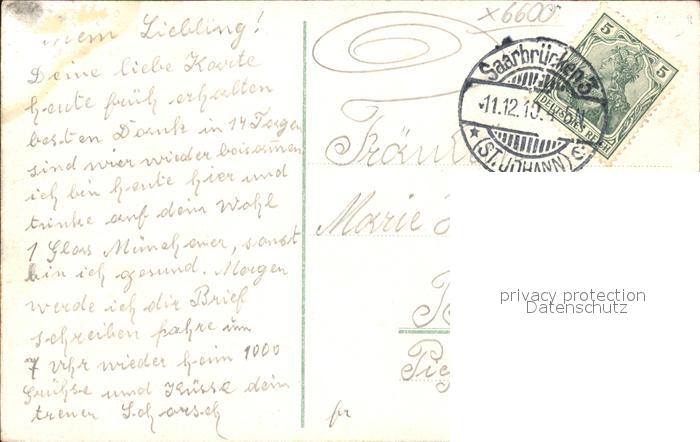 mein Liebling!
Deine liebe Karte
heute früh erhalten
besten Dank in 14 Tagen
sind wier wieder beisammen
ich bin heute hier und
trinke auf dein Wohl
1 Glas Münchener, sonst
bin ich gesund. Morgen
werde ich dir Brief
schreiben fahre um
7 Uhr wieder heim 1000
Grühse und Küsse dein
treuer Schorsch
x6600
5 5
DEUTSCHES REICH
Saarbrücken 3
11.12.10. 4-5N
(ST. JOHANN) c
Marie
fr
privacy protection
Datenschutz